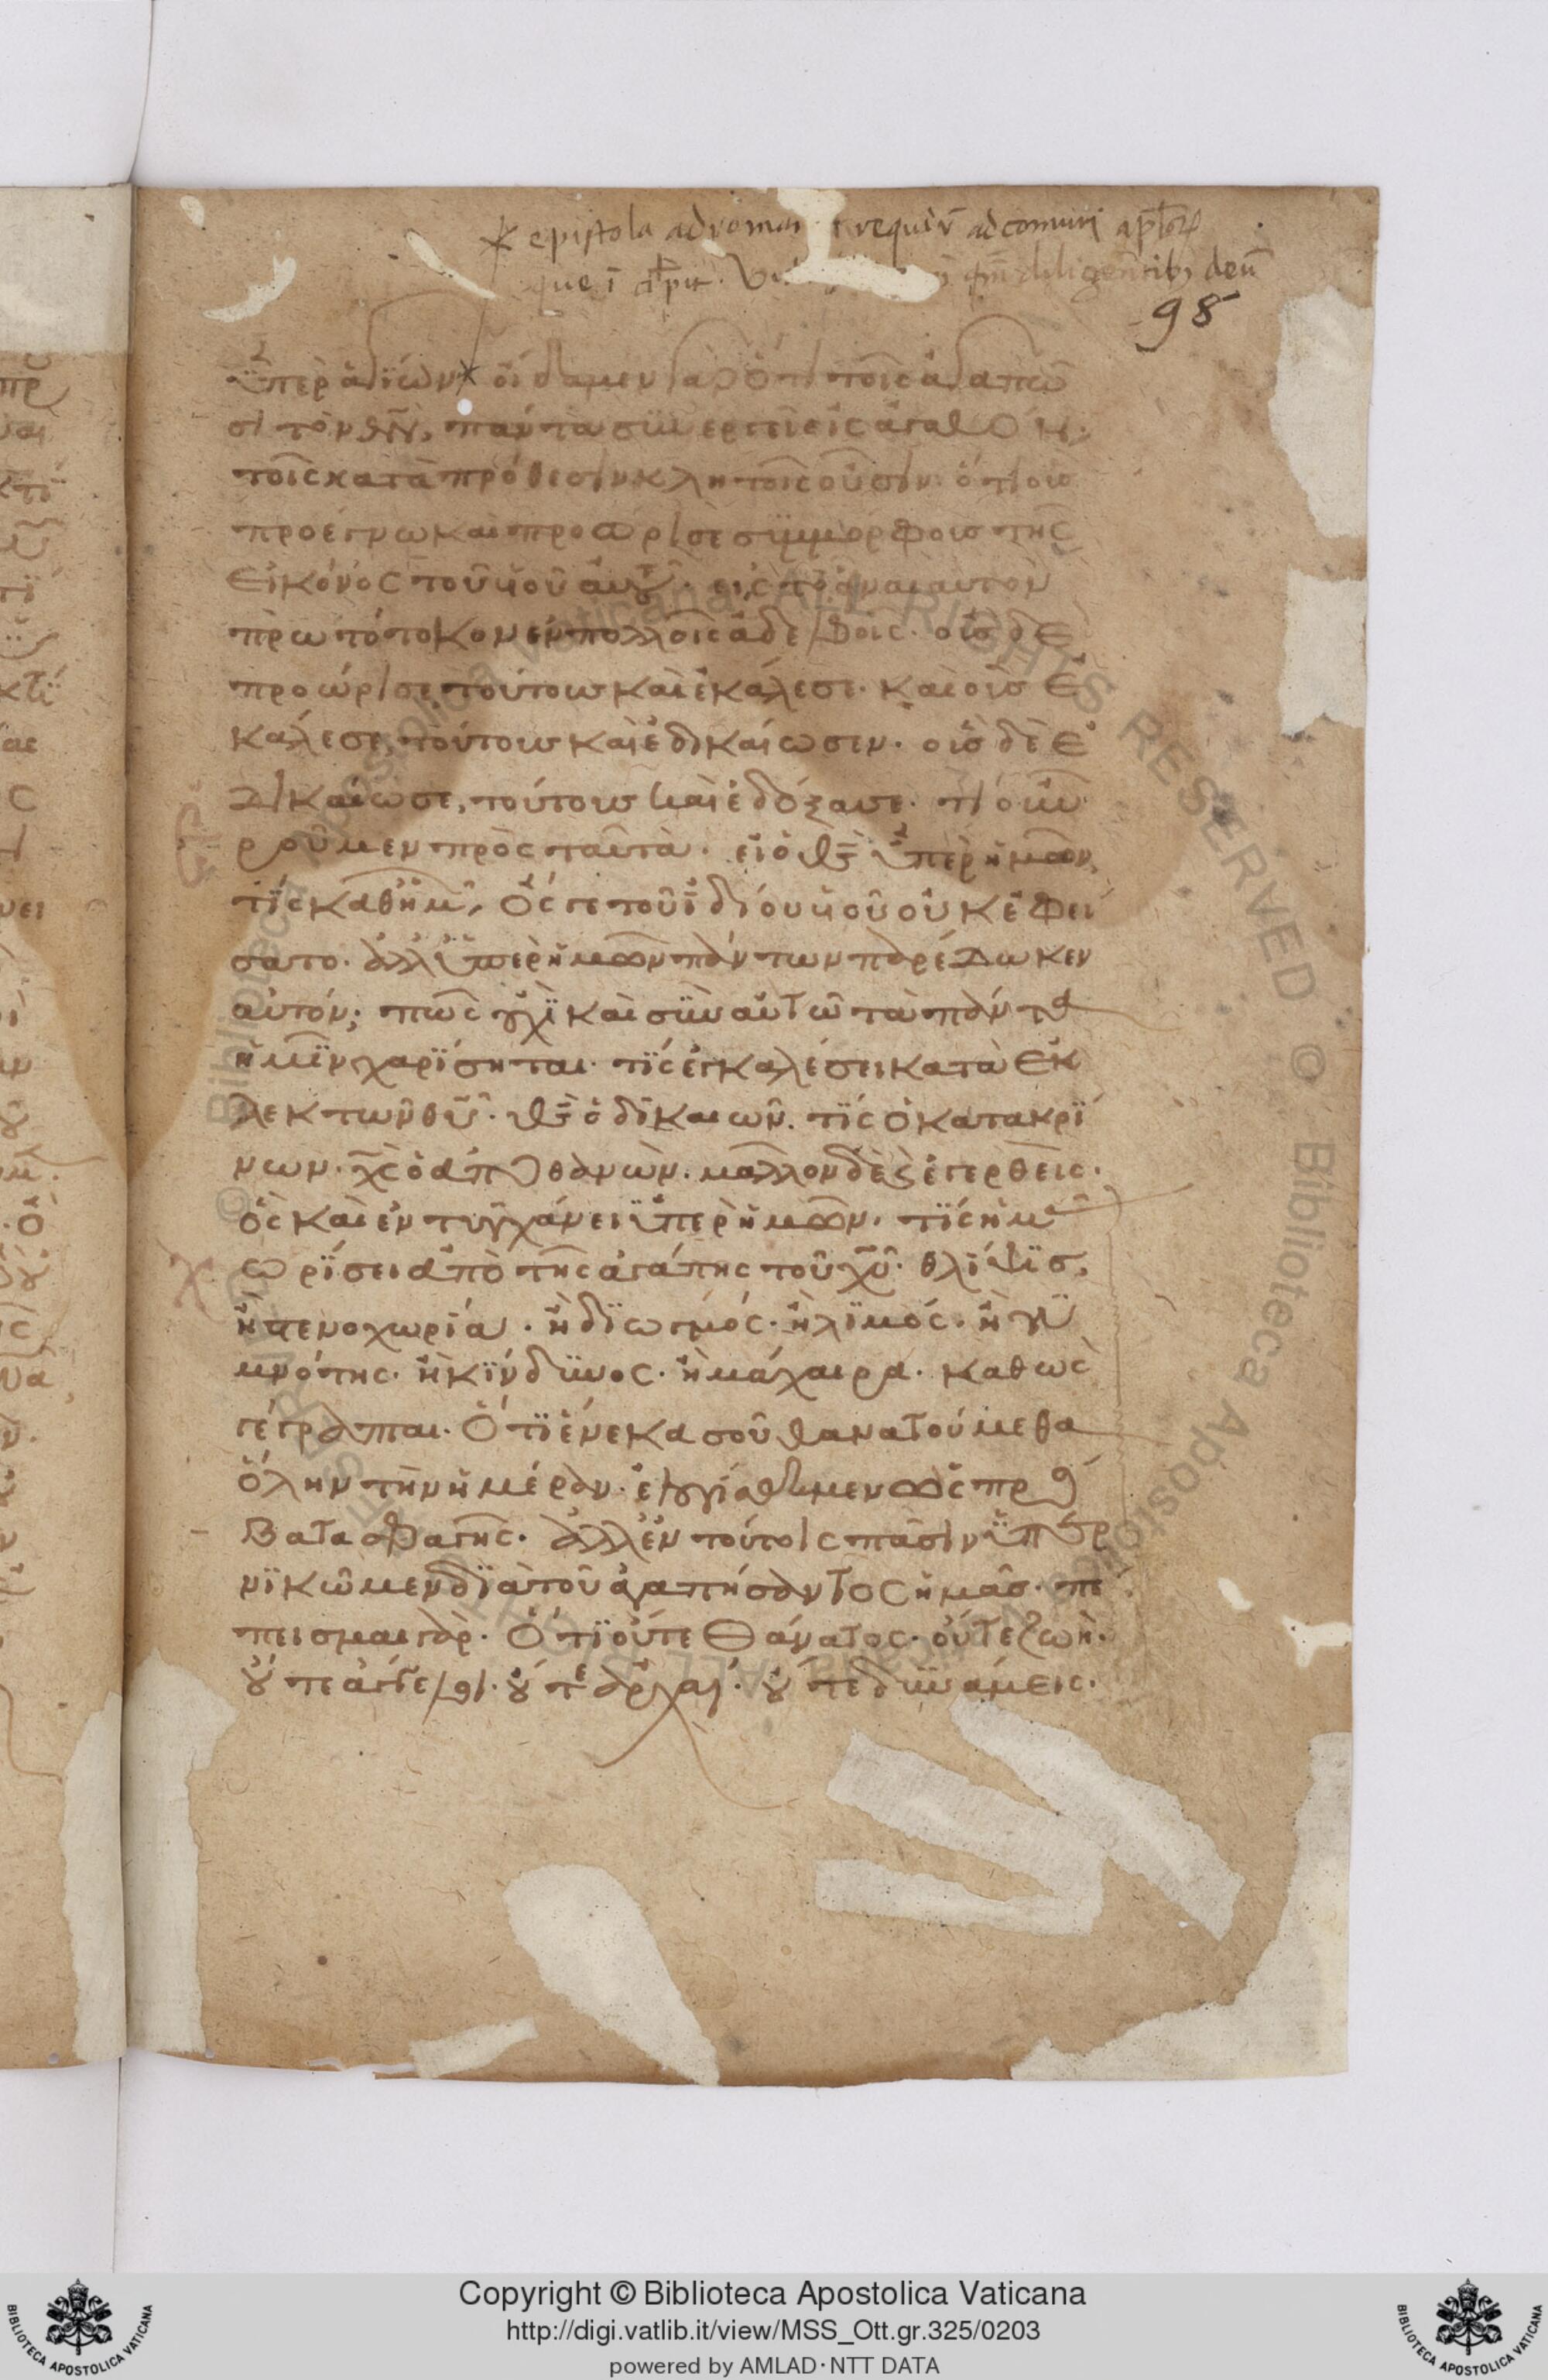 * epistola ad roman requir ad comuni aplor
que i diligentib deu
98
ὑπὲρ ἁγίων * οἴδαμεν γὰρ ὅτι τοῖς ἀγαπῶ
σι τὸν θν, πάντα συνεργεῖ εἰς ἀγαθόν.
τοῖς κατὰ πρόθεσιν κλητοῖς οὖσιν. ὅτι οὓσ
προέγνω καὶ προώρισε συμμόρφουσ τῆς
εἰκόνος τοῦ υἱοῦ αὐτοῦ. εἰς τὸ εἶναι αὐτὸν
πρωτότοκον ἐν πολλοῖς ἀδελφοῖς. οὓσ δὲ
προώρισε τούτουσ καὶ ἐκάλεσε. καὶ οὓσ ἐ
κάλεσε, τούτουσ καὶ ἐδικαίωσεν. οὓσ δὲ ἐ
δικαίωσε, τούτουσ καὶ ἐδόξασε. τί οὖν
ἐροῦμεν πρὸς ταῦτα. εἰ ὁ θς ὑπὲρ ἡμῶν,
τίς καθ' ἡμ. ὅς γε τοῦ ἰδίου υἱοῦ οὐκ ἐφεί
σατο. ἀλλ' ὑπὲρ ἡμῶν πάντων παρέδωκεν
αὐτόν; πῶς οὐχὶ καὶ σὺν αὐτῶ τὰ πάντα
ἡμῖν χαρίσηται. τίς ἐγκαλέσει κατὰ ἐκ
λεκτῶν θυ. θς ὁ δικαιῶν. τίς ὁ κατακρί
νων. χς ὁ ἀποθανών. μᾶλλον δὲ ἐγερθεὶς.
ὃς καὶ ἐντυγχάνει ὑπὲρ ἡμῶν. τίς ἡμᾶ
χωρίσει ἀπὸ τῆς ἀγάπης τοῦ χυ. θλίψισ,
ἢ στενοχωρία. ἢ διωγμός. ἢ λιμός. ἢ γυ
μνότης. ἢ κίνδυνος. ἢ μάχαιρα. καθὼς
γέγραπται. ὅτι ἕνεκα σοῦ θανατούμεθα
ὅλην τὴν ἡμέραν. ἐλογίσθημεν ὡς πρό
βατα σφαγῆς. ἀλλ' ἐν τούτοις πᾶσιν ὑπερ
νικῶμεν διὰ τοῦ ἀγαπήσαντος ἡμᾶσ. πέ
πεισμαι γὰρ. ὅτι οὔτε θάνατος. οὔτε ζωὴ.
οὔτε ἄγγελοι. οὔτε ἀρχαί. οὔτε δυνάμεις.
Copyright © Biblioteca Apostolica Vaticana
http://digi.vatlib.it/view/MSS_Ott.gr.325/0203
powered by AMLAD·NTT DATA